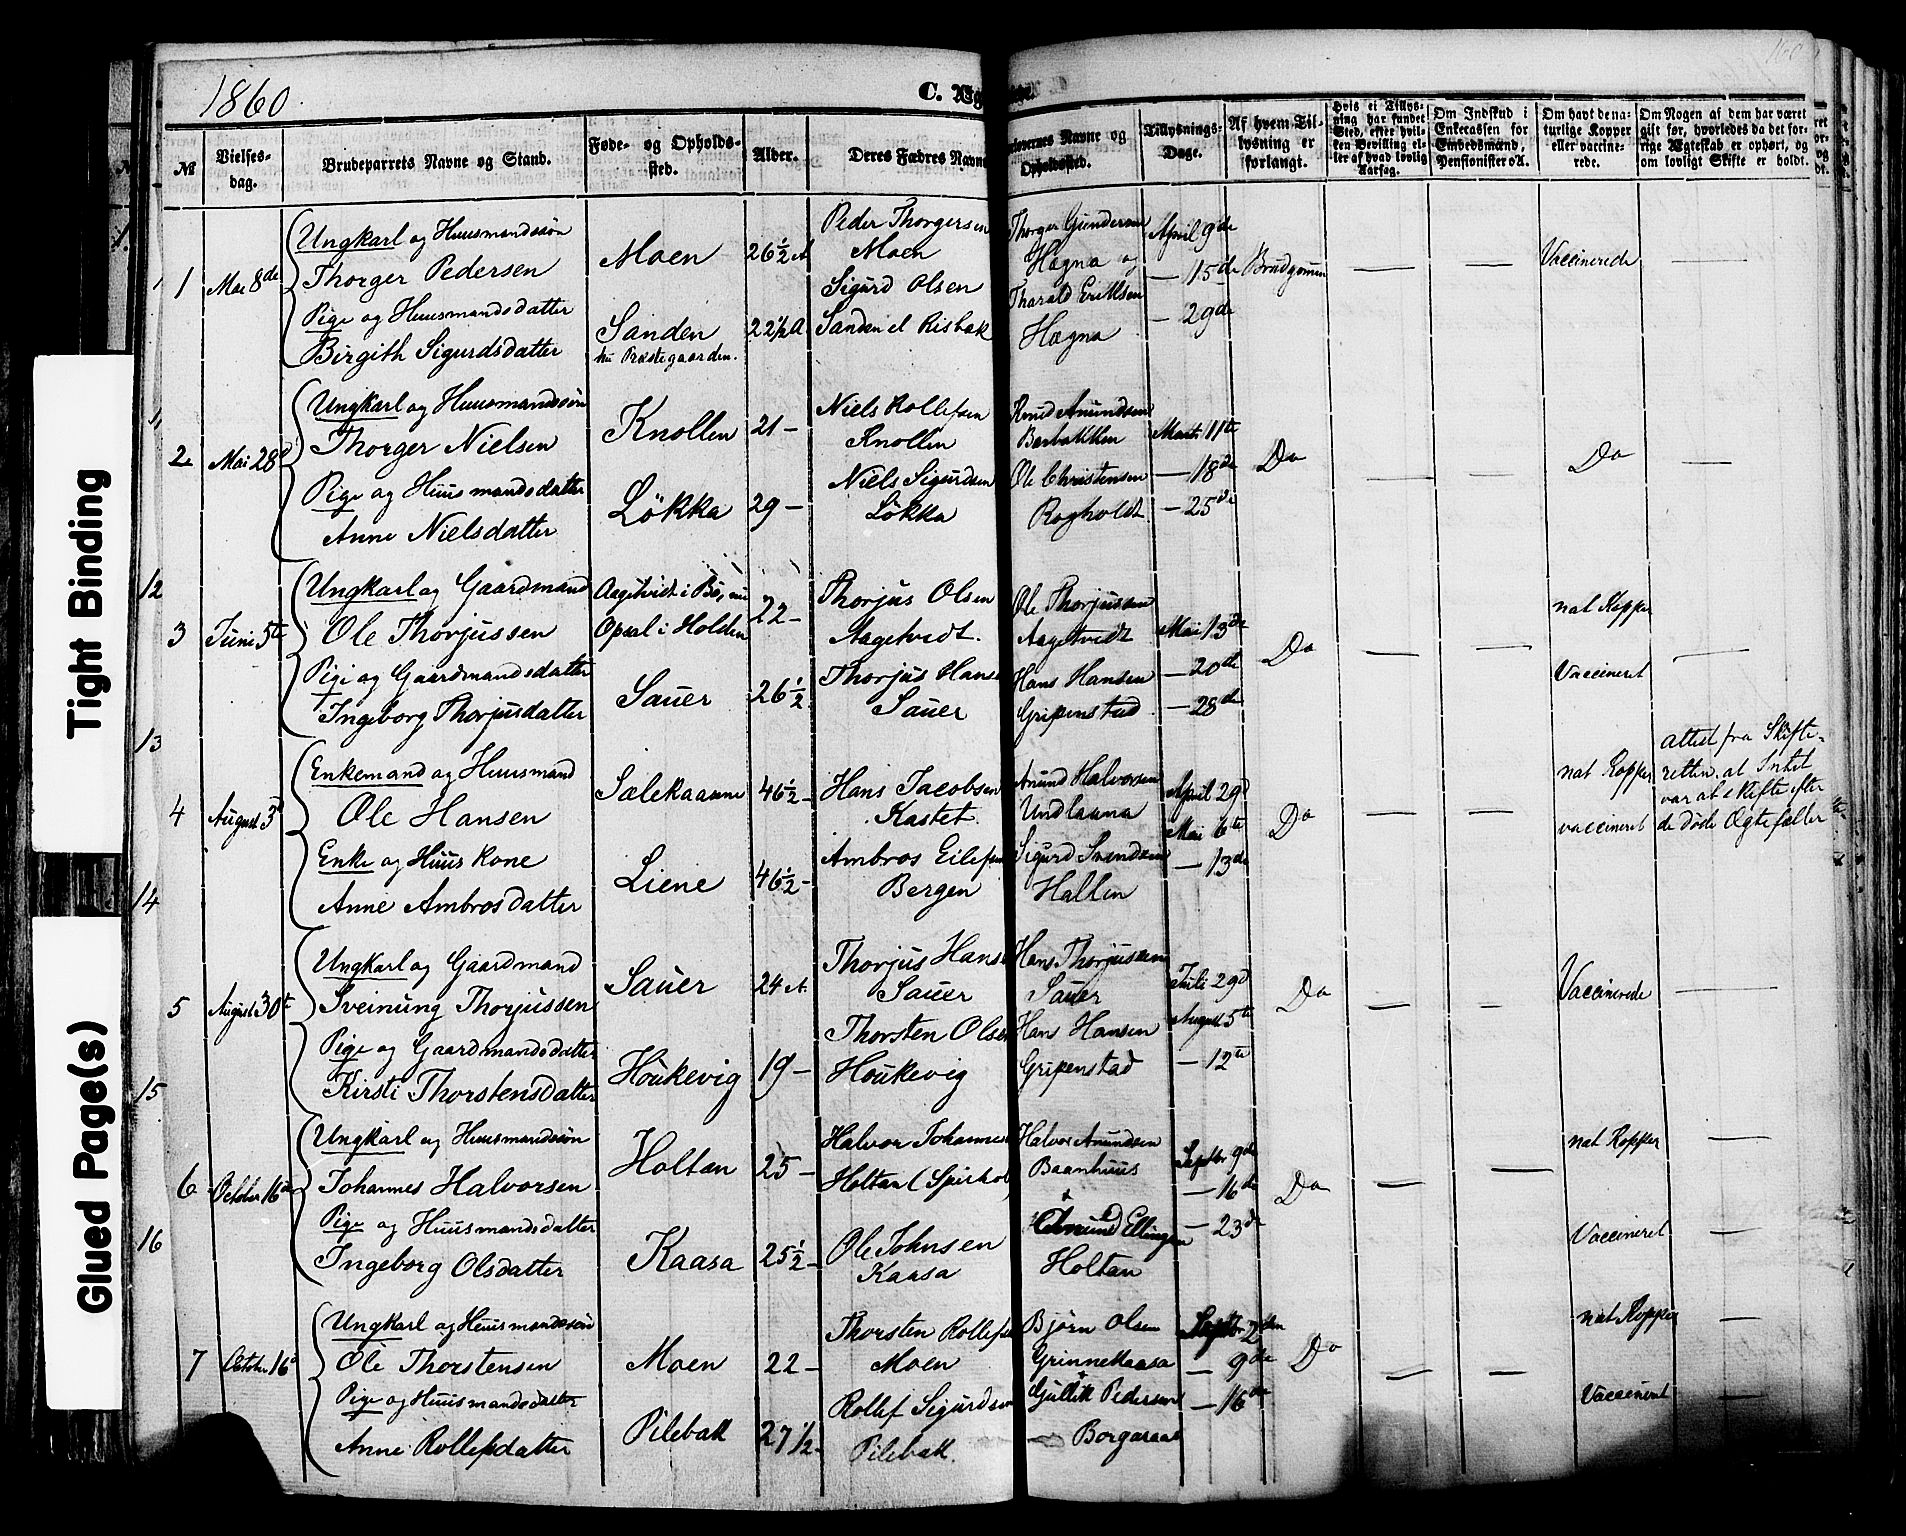 1860.
C. Æg
160
Tight Binding
Glued Page(s)
№
Vielses-
dag.
Brudeparrets Navne og Stand.
Føde- og Opholds-
sted.
Alder.
Deres Fædres Navne
Forlovernes Navne og
Opholdssted.
Tillysnings-
Dage.
Af hvem Til-
lysning er
forlangt.
Hvis ei Tillys-
ning har fundet
Sted, efter hvil-
ken Bevilling el-
ler af hvad lovlig
Aarsag.
Om Indskud i
Enkecassen for
Embedsmænd,
Pensionister o.A.
Om havt de na-
turlige Kopper
eller vaccine-
rede.
Om Nogen af dem har været
gift før, hvorledes da det for-
rige Ægteskab er ophørt, og
om lovligt Skifte er holdt.
1
Mai 8de
Ungkarl og Huusmandssøn
Thorger Pedersen
Pige og Huusmandsdatter
Birgith Sigurdsdatter
Moen
Sanden
nu Præstegaarden.
26½ A
22½ A
Peder Thorgersen
Moen
Sigurd Olsen
Sanden el Risbak
Thorger Gundersen
Hægna og
Tharald Eriksen
Hægna
April 9de
— 15de
— 29de
Brudgommen
—
—
Vaccinerede
—
2
Mai 28d
Ungkarl og Huusmandssøn
Thorger Nielsen
Pige og Huusmandsdatter
Anne Nielsdatter
Knollen
Løkka
21 —
29 —
Niels Rollefsen
Knollen
Niels Sigurdsen
Løkka
Knud Amundsen
Barbakken
Ole Christensen
Rogholdt
Marts 11te
— 18de
— 25de
Do
—
—
Do
—
3
Juni 5te
Ungkarl og Gaardmand
Ole Thorjussen
Pige og Gaardmandsdatter
Ingeborg Thorjusdatter
Aagetvedt i Bø, nu
Opsal i Holden
Sauer
22 —
26½
Thorjus Olsen
Aagetvedt.
Thorjus Hans
Sauer
Ole Thorjussen
Aagetvedt
Hans Hansen
Gripenstad
Mai 13de
— 20de
— 28de
Do
—
—
nat Kopper
Vaccineret
—
4
August 3d
Enkemand og Huusmand
Ole Hansen
Enke og Huuskone
Anne Ambrosdatter
Sælekaasene
Liene
46½ —
46½ —
Hans Jacobsen
Kastet.
Ambros Eilefsen
Bergen
Anund Halvorsen
Undlauna
Sigurd Svendsen
Halten
April 29d
Mai 6te
— 13de
Do
—
—
nat Kopper
vaccineret
attest fra Skifte-
retten at Intet
var at skifte efter
de døde Ægtefæller
5
August 30te
Ungkarl og Gaardmand
Sveinung Thorjussen
Pige og Gaardmandsdatter
Kirsti Thorstensdatter
Sauer
Houkevig
24 A.
19 —
Thorjus Hans
Sauer
Thorsten Olsen
Houkevig
Hans Thorjussen
Sauer
Hans Hansen
Gripenstad
Juli 29d
August 5te
— 12te
Do
—
—
Vaccinerede
—
6
October 16de
Ungkarl og Huusmandssøn
Johannes Halvorsen
Pige og Huusmandsdatter
Ingeborg Olsdatter
Holtan
Kaasa
25 —
25½ —
Halvor Johannes
Holtan (Spirhol)
Ole Johnsen
Kaasa
Halvor Anundsen
Baanhuus
Amund Ellingsen
Holtan
Septbr 9de
— 16de
— 23de
Do
—
—
nat Kopper
Vaccineret
—
—
7
Octbr. 16d
Ungkarl og Huusmandssøn
Ole Thorstensen
Pige og Huusmandsdatter
Anne Rollefsdatter
Moen
Pilebak
22 —
27½ —
Thorsten Rollefsen
Moen
Rollef Sigurdsen
Pilebak.
Bjørn Olsen
Grinnekaasa
Gullik Pedersen
Borgaraas
Septbr 2den
— 9de
— 16de
Do
—
—
nat Kopper
Vaccineret
—
—
12
13
14
15
16